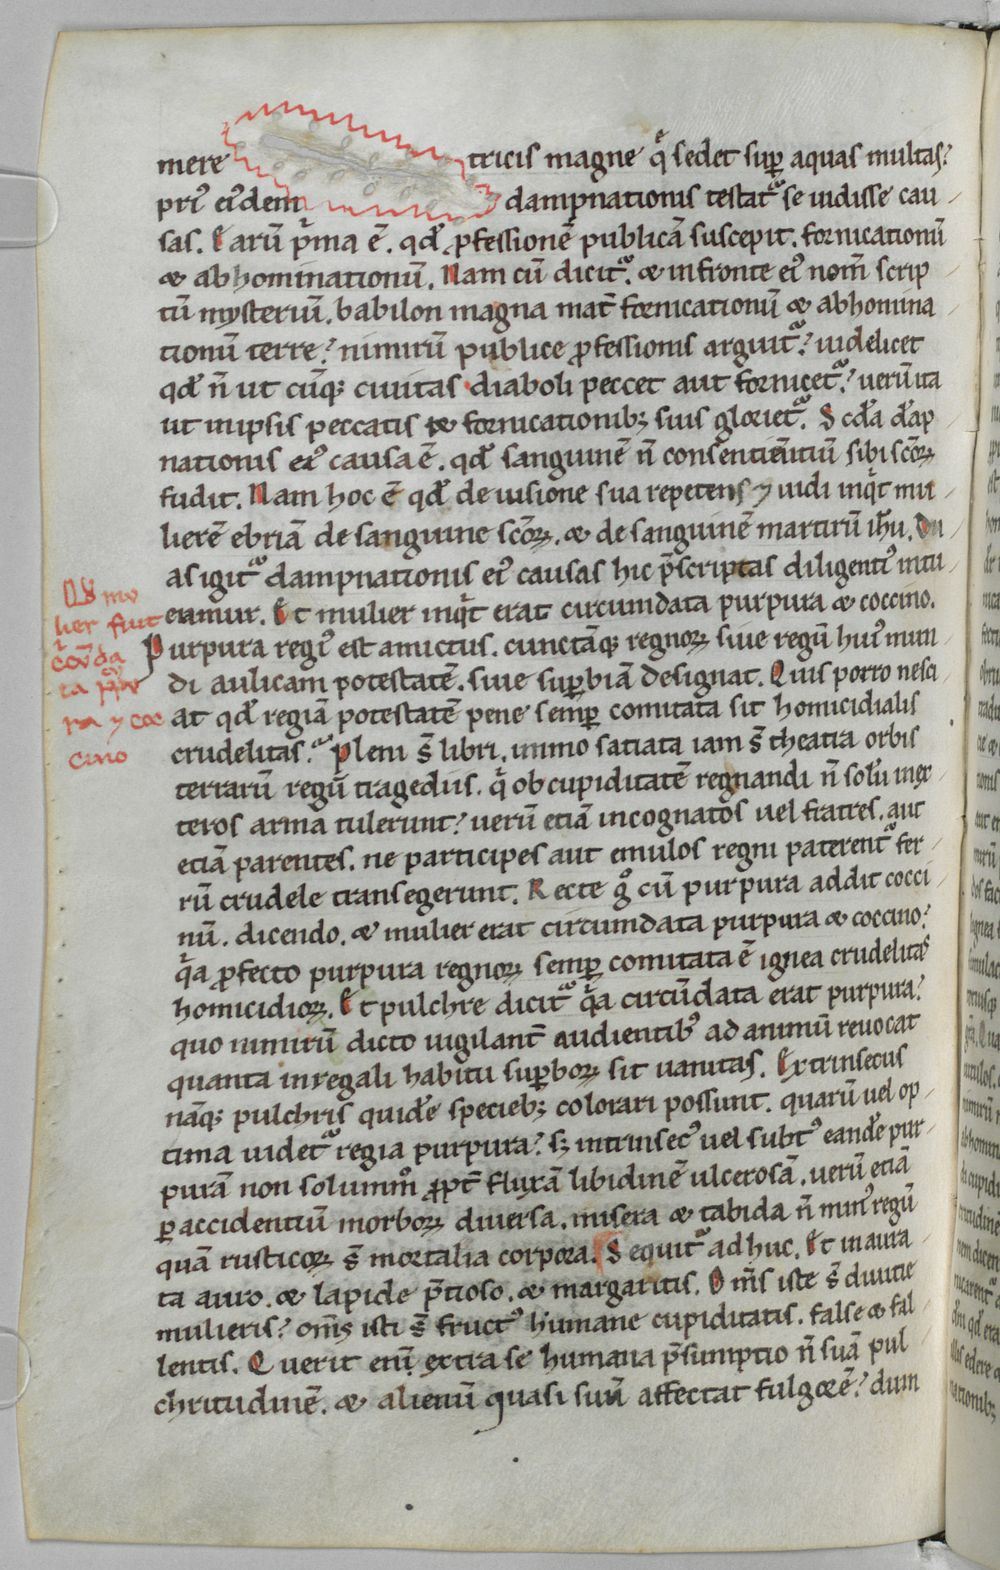 mere tricis magne q̛ sedet sup̱ aquas multas?
pri᷒ ei᷒dem dampnationis testat᷑ se uidisse cau
sas. Earū p̛ma ē. qđ ꝓfessionē publicā suscepit. fornicationū
& abhominationū. Nam cū dicit᷑. & in fronte ei᷒ nom̄ scrip
tū mysteriū. babilon magna mat̄ fornicationū & abhomina
tionū terre? nimirū publice ꝓfessionis arguit᷑? uidelicet
qđ n̄ ut cūq; ciuitas diaboli peccet aut fornicet᷑? uerū ita
ut in ipsis peccatis & fornicationib; suis gloriet᷑. Scđa dāp
nationis ei᷒ causa ē. qđ sanguinē n̄ consentientiū sibi scō⁊
fudit. Nam hoc ē qđ de uisione sua repetens ⁊ uidi inq̛t mu
lierē ebriā de sanguine scōꝝ. & de sanguinē martirū ih̄u. Du
as igit᷑ dampnationis ei᷒ causas hic p̄scriptas diligenti᷒ intu
eamur. Et mulier inq̛t erat circumdata purpura & coccino.
Purpura regi᷒ est amictus. cunctāq; regnoꝝ siue regū hui᷒ mun
di aulicam potestatē. siue sup̱biā designat. Quis porro nesci
at qđ regiā potestatē pene semp̱ comitata sit homicidialis
crudelitas? Pleni s̄ libri. immo satiata iam s̄ theatra orbis
terrarū regū tragediis. q̛ ob cupiditatē regnandi n̄ solū in ex
teros arma tulerunt? uerū etiā in cognatos uel fratres. aut
etiā parentes. ne participes aut emulos regni paterent᷑ fer
rū crudele transegerunt. Recte g̊ cū purpura addit cocci
nū. dicendo. & mulier erat circumdata purpura & coccino?
q̛a ꝓfecto purpura regnoꝝ semp̱ comitata ē ignea crudelitas
homicidioꝝ. Et pulchre dicit᷑ q̛a circūdata erat purpura?
quo nimirū dicto uigilant̄ audientib᷒ ad animū reuocat
quanta in regali habitu sup̱boꝝ sit uanitas. Extrinsecus
nāq; pulchris quidē specieb; colorari possunt. quarū uel op
tima uidet᷑ regia purpura? sꝫ intrinsec᷒ uel subt᷒ eandē pur
purā non solummͦ ꝓpt̄ fluxā libidinē ulcerosā. uerū etiā
ꝑ accidentiū morboꝝ diuersa. misera & tabida n̄ min᷒ regū
quā rusticoꝝ s̄ mortalia corpora. Sequit᷑ adhuc. Et inaura
ta auro. & lapide p̄tioso. & margaritis. Om̄s iste s̄ diuitie
mulieris? om̄s isti s̄ fruct᷒ humane cupiditatis. false & fal
lentis. Querit enī extra se humana p̄sumptio n̄ suā pul
chritudinē. & alienū quasi suū affectat fulgorē? dum
Qd mu
lier fuit
c̛cūda
ta p᷑pu
ra ⁊ coc
cino